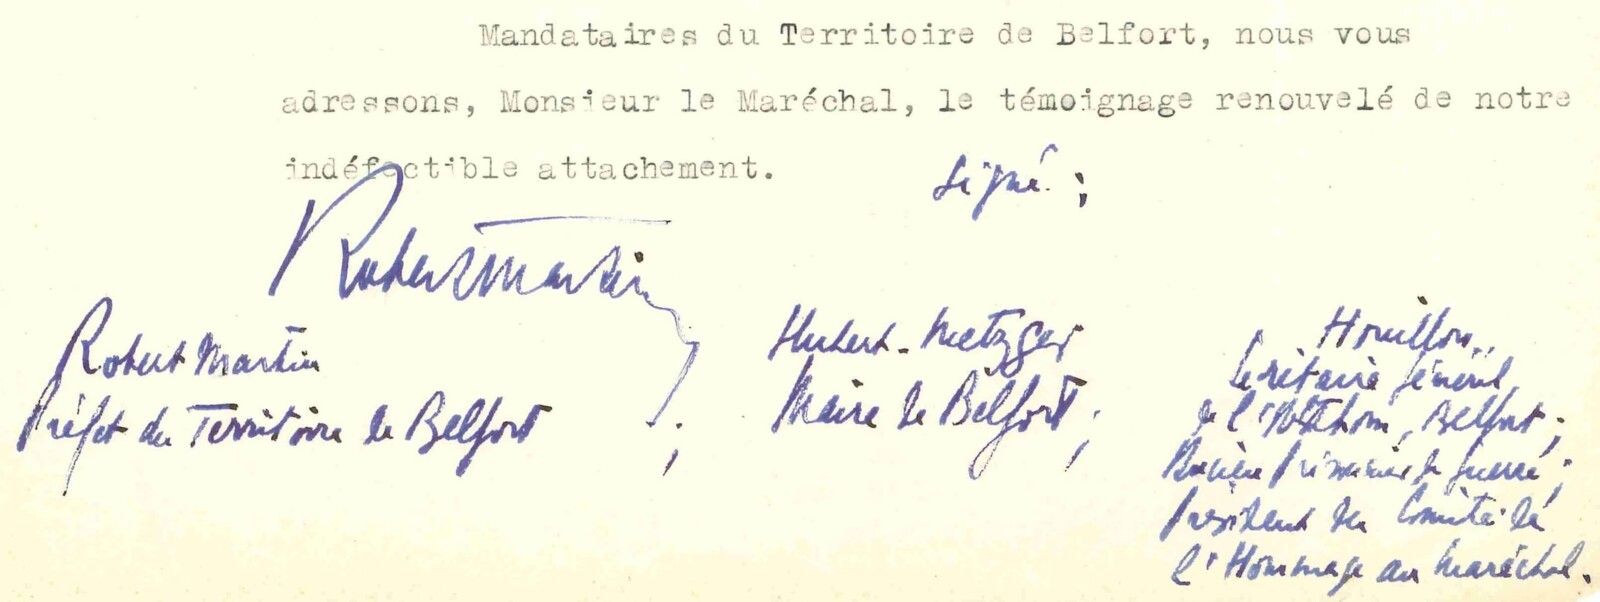 Mandataires du Territoire de Belfort, nous vous
adressons, Monsieur le Maréchal, le témoignage renouvelé de notre
indéfectible attachement.
Signé :
Robert Martin
Robert Martin
Préfet du Territoire de Belfort ;
Hubert-Metzger
Maire de Belfort ;
Houillon,
Secrétaire Général
de l'Alsthom, Belfort ;
Prisonnier de guerre ;
Président du Comité de
l'Hommage au Maréchal.